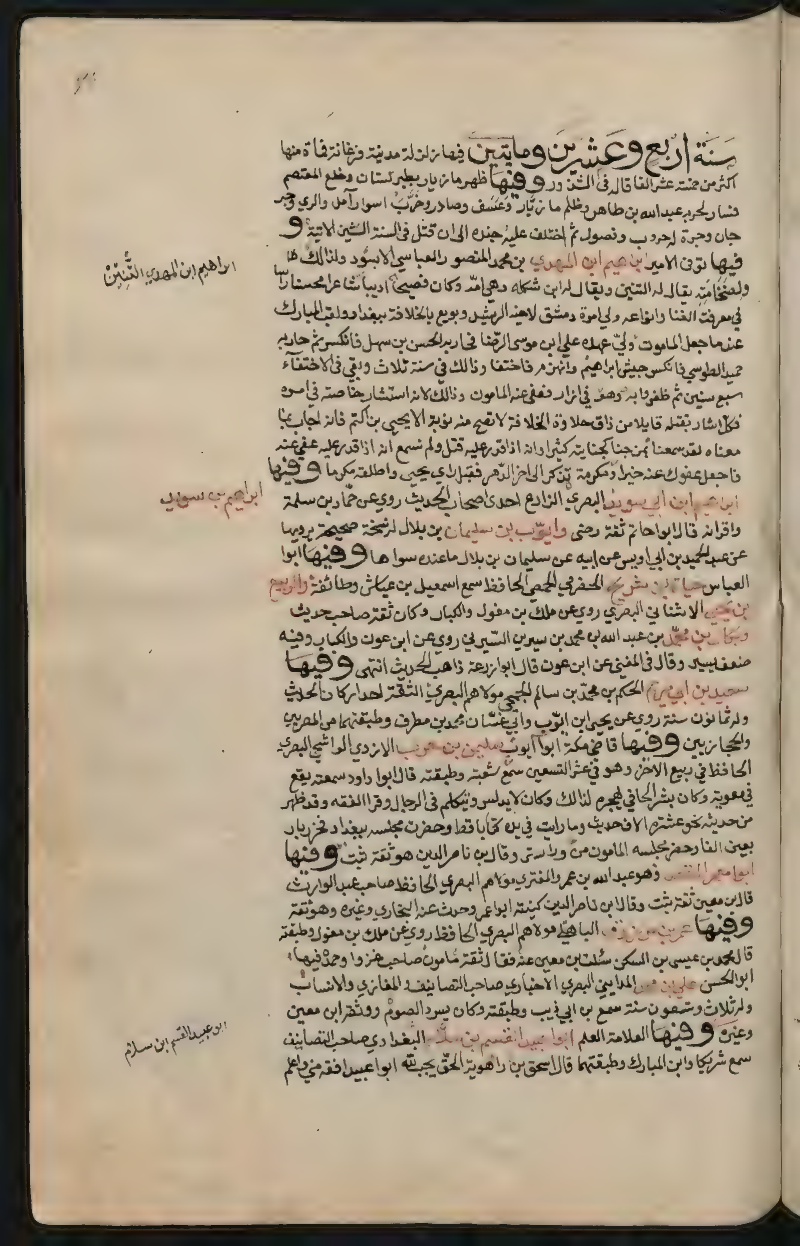 سنة اربع وعشرين ومايتين فيها زلزلة مدينة فرغانة فمات منها
اكثر من خمسة عشر الفا قاله في الشذور وفيها ظهر مازيار بطبرستان وخلع المعتصم
فسار لحربه عبد الله بن طاهر وظلم مازيار وعسف وصادر وخرب اسوار آمل والري وجر
جان وجرت له حروب وفصول ثم اختلف عليه جنده الى ان قتل في السنة الاتية و
فيها توفي الامير ابراهيم ابن المهدي بن محمد المنصور العباسي الاسود ولذالك
ولضخامته يقال له التنين ويقال له ابن شكله وهي امه وكان فصيحا اديبا شاعرا محسنا راسا
في معرفة الغنا وانواعه ولي امرة دمشق لاخيه الرشيد وبويع بالخلافة ببغداد ولقب المبارك
عند ما جعل المامون ولي عهده علي ابن موسى الرضا فحاربه الحسن بن سهل فانكسر ثم حاربه
حميد الطوسي فانكسر جيش ابراهيم وانهزم فاختفا وذالك في سنة ثلاث وبقي في الاختفاء
سبع سنين ثم ظفروا به وهو في ازار فعفى عنه المامون وذالك لانه استشار خاصته في امره
فكل اشار بقتله قايلا من ذاق حلاوة الخلافة لا تصح منه توبة الا يحيى بن اكثم فانه اجاب بما
معناه لقد سمعنا بمن جنا كجنايته كثيرا وانه اذا قدر عليه قتل ولم نسمع انه اذا قدر عليه عفي عنه
فاجعل عفوك عنه خيرا ومكرمة تذكر الى اخر الدهر فقبل راي يحيى واطلقه مكرما وفيها
ابراهيم ابن ابي سويد البصري الذارع احدى اصحاب الحديث روى عن حماد بن سلمة
واقرانه قال ابوا حاتم ثقة رضى وايوب بن سليمان بن بلال له نسخة صحيحة يرويها
عن عبد الحميد بن ابي اويس عن ابيه عن سليمان بن بلال ما عنده سواها وفيها ابوا
العباس حياة بن شريح الحضرمي الحمصي الحافظ سمع اسمعيل بن عياش وطائفة والربيع
بن يحيى الاشناني البصري روى عن ملك بن مغول والكبار وكان ثقة صاحب حديث
وبكار بن محمد بن عبد الله بن محمد بن سيرين السيريني روى عن ابن عون والكبار وفيه
ضعف يسير وقال في المغني عن ابن عون قال ابوا زرعة ذاهب الحديث انتهى وفيها
سعيد بن ابي مريم الحكم بن محمد بن سالم الجمحي مولاهم البصري الثقة احد اركان الحديث
وله ثمانون سنة روى عن يحيى ابن ايوب وابي غسان محمد بن مطرف وطبقتهما من المصريين
والحجازيين وفيها قاضي مكة ابوا ايوب سليمن بن حرب الازدي الواشحي البصري
الحافظ في ربيع الاخر وهو في عشر التسعين سمع شعبة وطبقته قال ابوا داود سمعته يقع
في معوية وكان بشر الحافي يهجره لذالك وكان لا يدلس ويتكلم في الرجال وقرا الفقه وقد ظهر
من حديثه نحو عشرة الاف حديث وما رايت في يده كتابا قط وحضرت مجلسه ببغداد فحزر بار
بعين الفا وحضر مجلسه المامون من وراء ستر وقال بن ناصر الدين هو ثقة ثبت وفيها
ابوا معمر المقعد وهو عبد الله بن عمر والمنقري مولاهم البصري الحافظ صاحب عبد الوارث
قال ابن معين ثقة ثبت وقال ابن ناصر الدين كنيته ابوا عمر وحدث عنه البخاري وغيره وهو ثقة
وفيها عمر بن مرزوق الباهلي مولاهم البصري الحافظ روى عن ملك بن مغول وطبقته
قال محمد بن عيسى بن السكن سئلت بن معين عنه فقال ثقة مامون صاحب غزوا وحمد وفيها
ابو الحسن علي بن محمد المدايني البصري الاخباري صاحب التصانيف والمغازي والانساب
وله ثلاث وتسعون سنة سمع بن ابي ذيب وطبقته وكان يسرد الصوم ووثقه ابن معين
وغيره وفيها العلامة العلم ابوا عبيد القسم بن سلام البغدادي صاحب التصانيف
سمع شريكا وابن المبارك وطبقتهما قال اسحق بن راهوية الحق يجب لله ابوا عبيد افقه مني واعلم
ابراهيم ابن المهدي التنين
ابراهيم بن سويد
ابو عبيد القسم ابن سلام